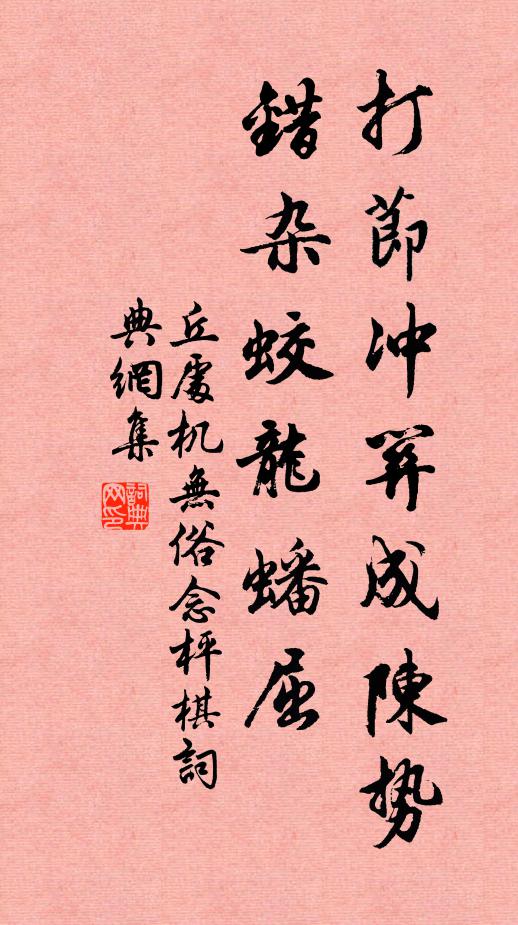 打節冲關成陳勢
錯杂蛟龍蟠屈
丘處机無俗念枰棋詞
典網集
詞典
网印